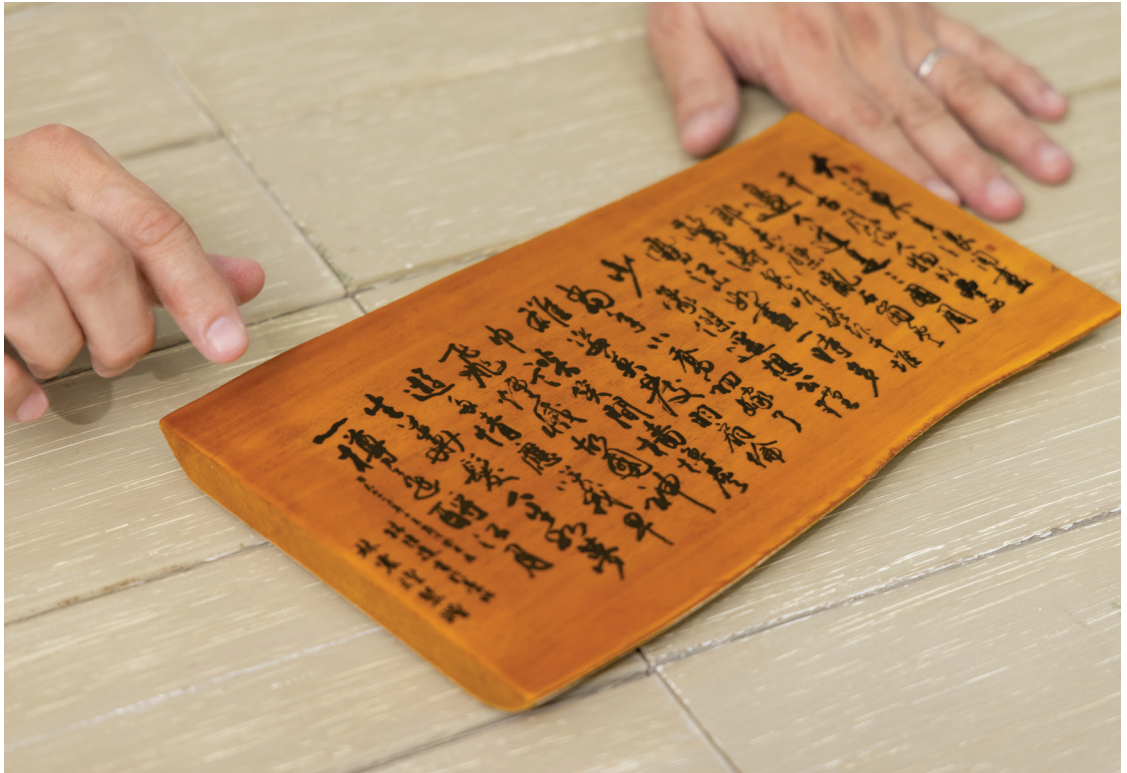 大江東去浪淘盡
千古風流人物故壘西
邊人道是三國周
郎赤壁亂石崩雲
驚濤裂岸捲起千堆
雪江山如畫一時多
少豪傑遙想公瑾
當年小喬初嫁了
雄姿英發羽扇綸
巾談笑間檣櫓灰
飛煙滅故國神
遊多情應笑我早
生華髮人生如夢
一樽還酹江月